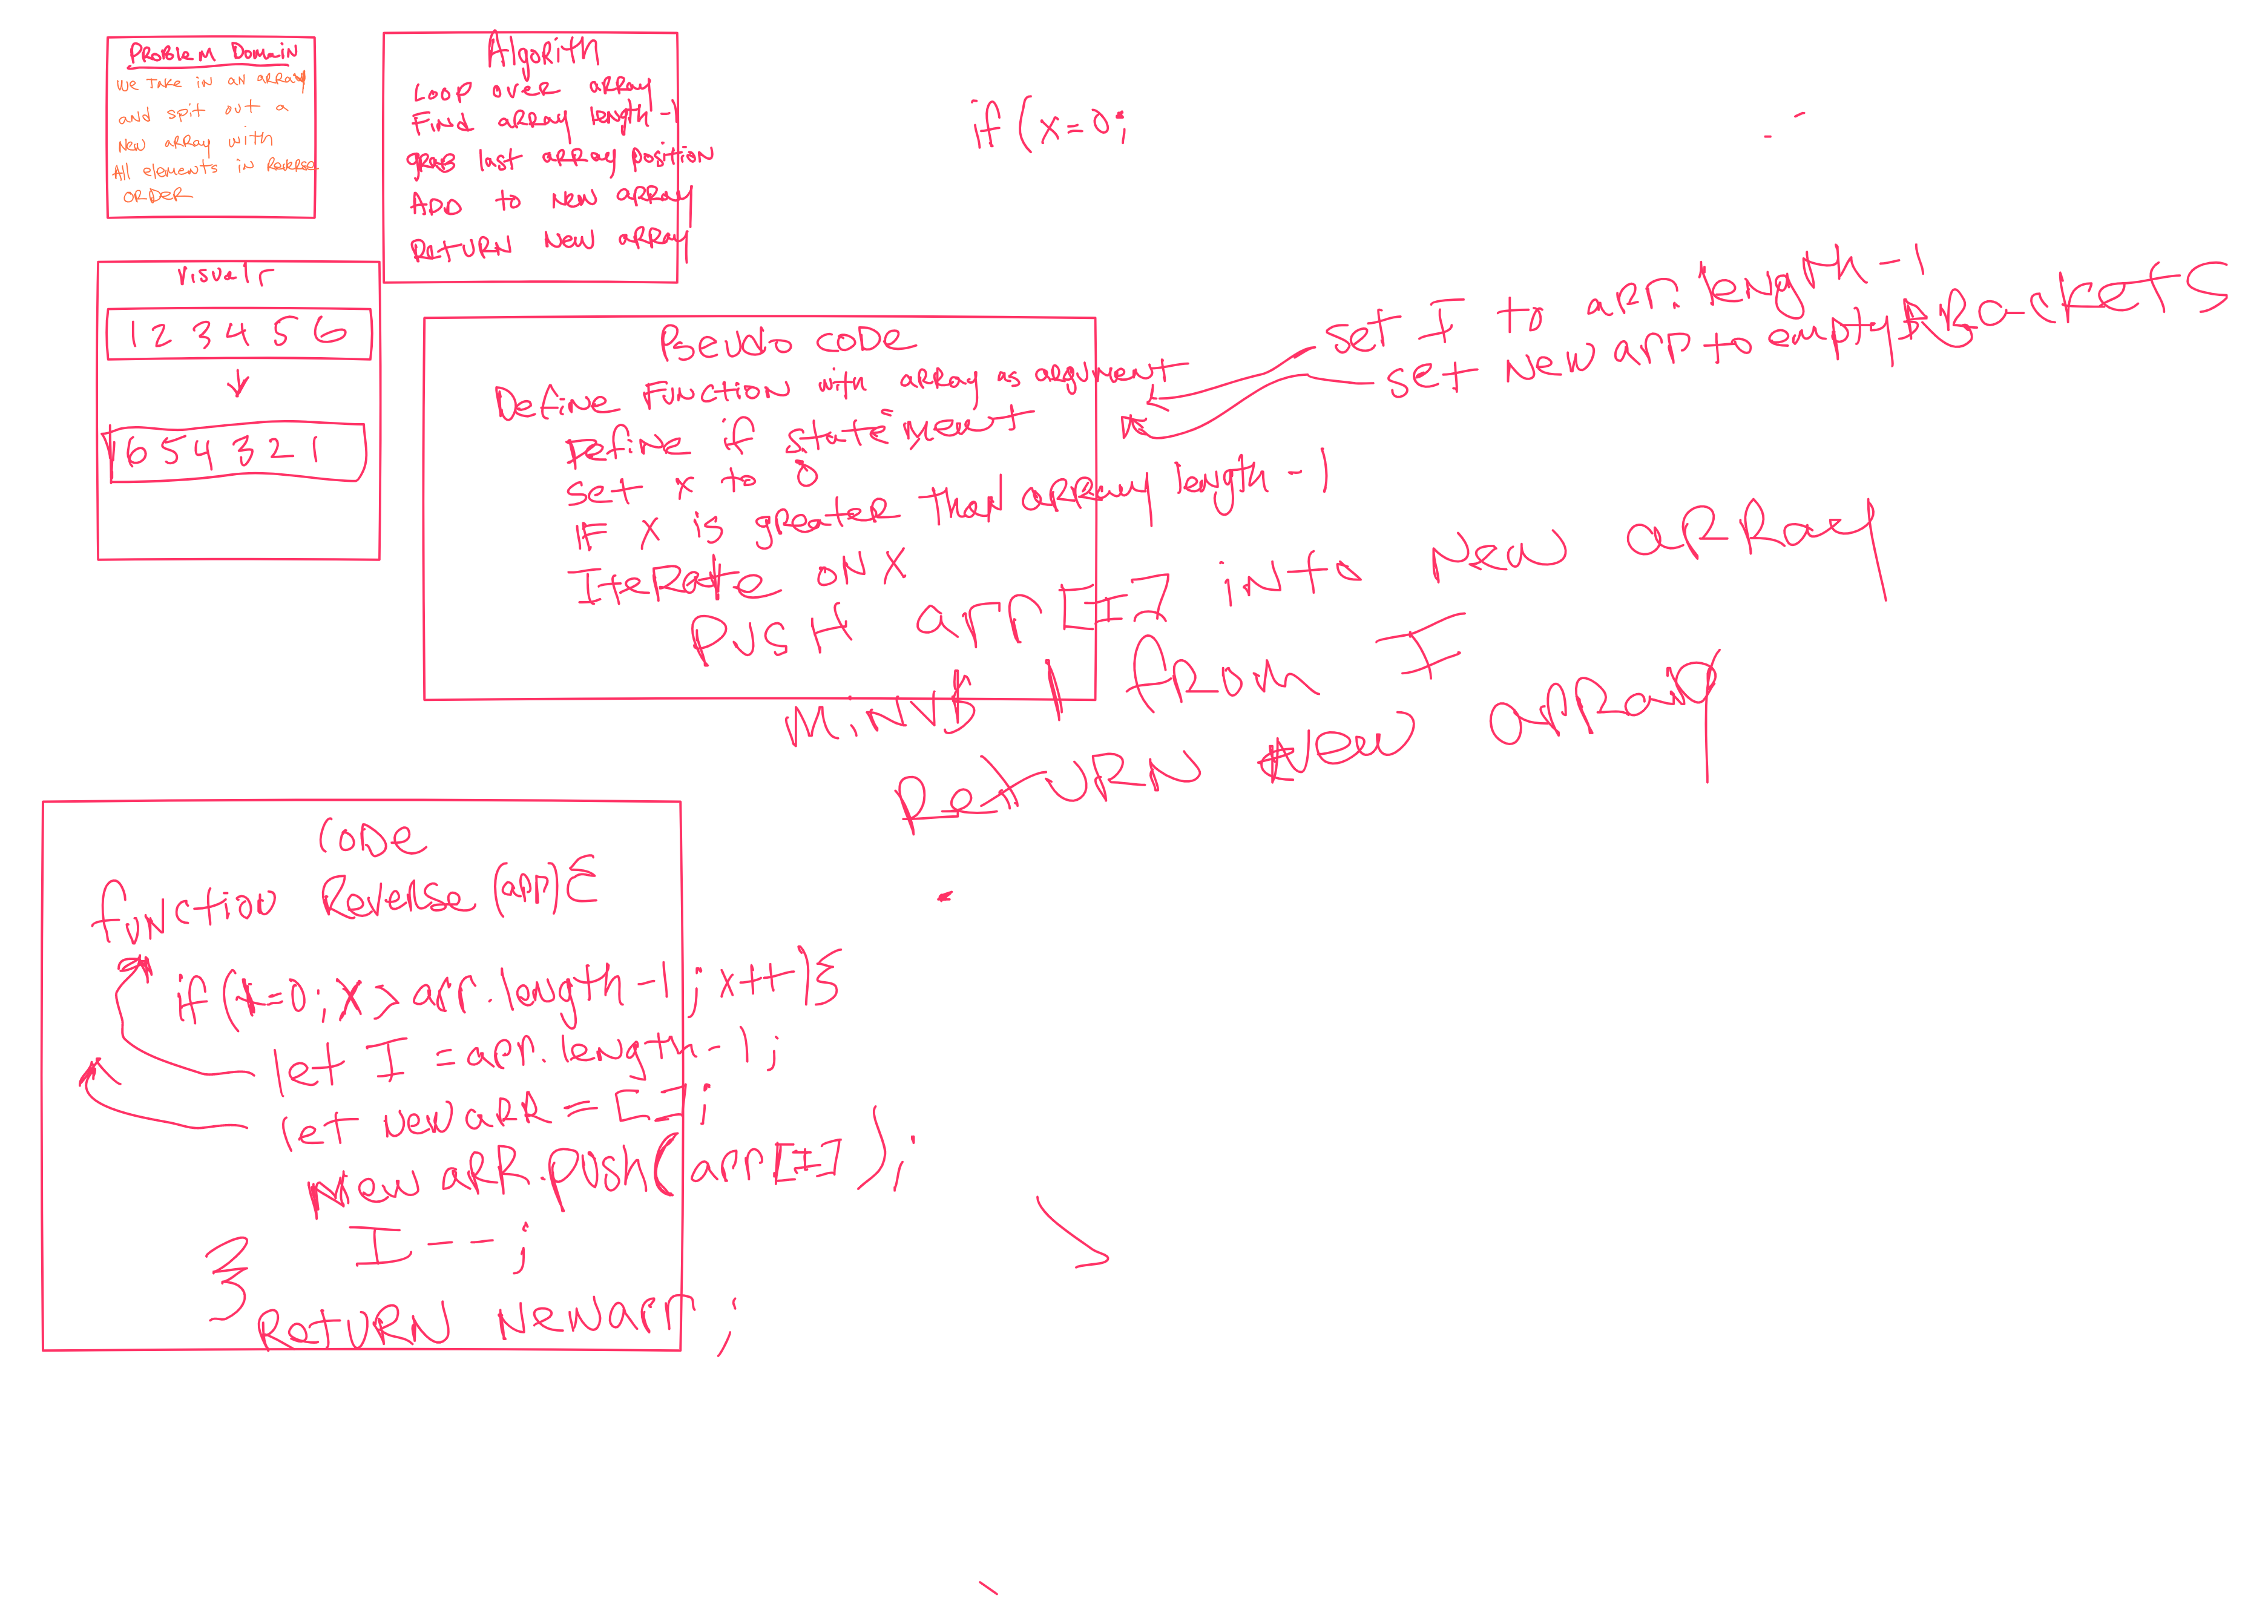 Problem Domain
We Take in an array
and spit out a
New array with
All elements in Reverse
ORDER
Algorith
Loop over array
Find array length -1
grab last array position
ADD to New array
Return New array
if (x=0;
Visual
1 2 3 4 5 6
6 5 4 3 2 1
Pseudo code
Define Function with array as argument
Define if statement
set x to 0
IF X is greater than array length -1
Iterate on X
Push arr[I] into New array
Minus 1 from I
Return New array
set I to arr.length -1
set New arr to empty Brackets
Code
function Reverse (arr){
if(x=0; x>arr.length-1; x++){
let I = arr.length-1;
let newarr = [];
Newarr.push(arr[I]);
I--;
}
Return Newarr;